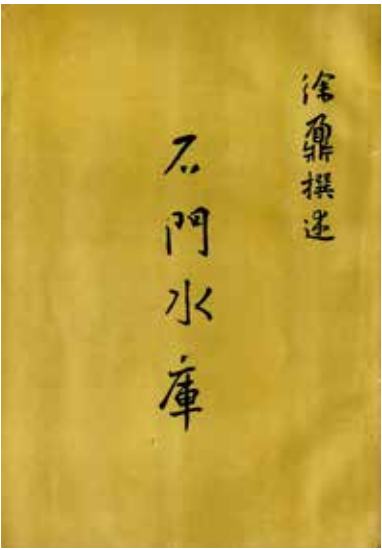 徐鼐撰述
石門水庫